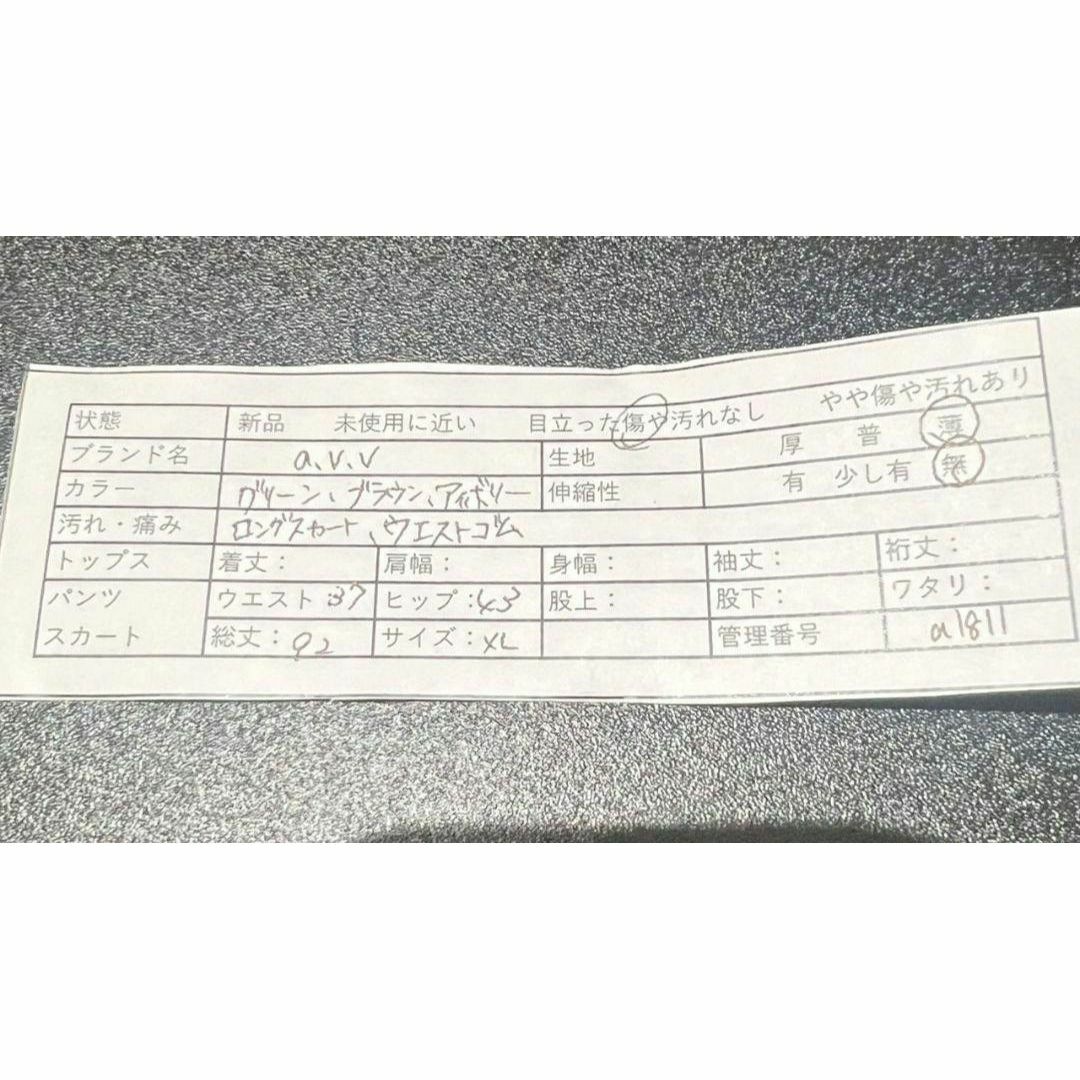 状態 新品 未使用に近い 目立った傷や汚れなし やや傷や汚れあり
ブランド名 a.v.v 生地 厚 普 薄
カラー グリーン、ブラウン、アイボリー 伸縮性 有 少し有 無
汚れ・痛み ロングスカート、ウエストゴム
トップス 着丈: 肩幅: 身幅: 袖丈: 裄丈:
パンツ ウエスト:37 ヒップ:43 股上: 股下: ワタリ:
スカート 総丈:92 サイズ:XL 管理番号 a1811